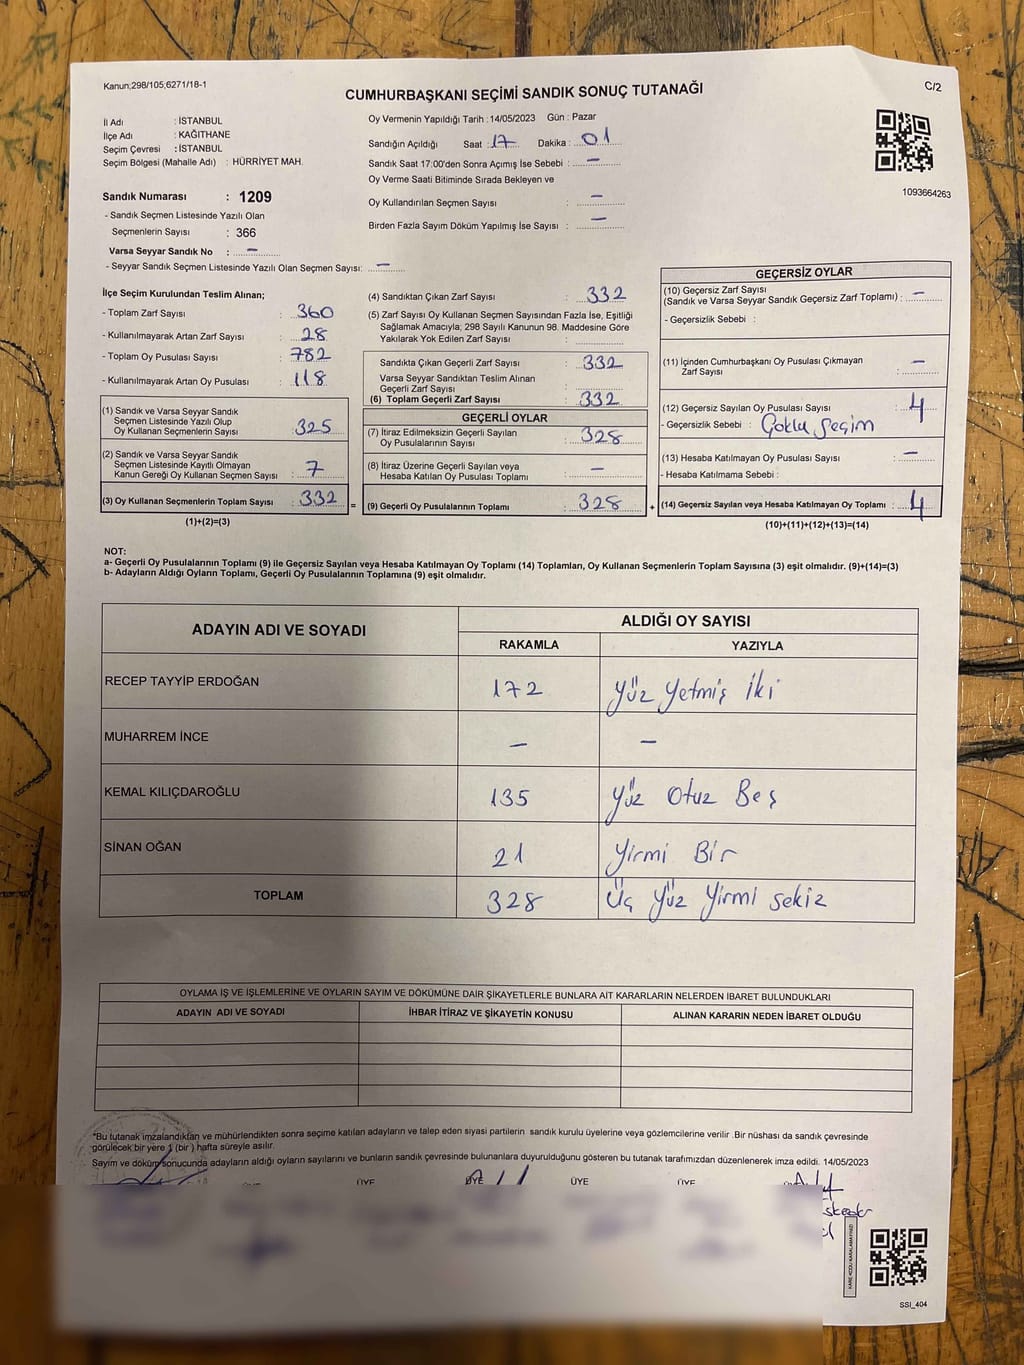 Kanun;298/105;6271/18-1
C/2
CUMHURBAŞKANI SEÇİMİ SANDIK SONUÇ TUTANAĞI
İl Adı : İSTANBUL
İlçe Adı : KAĞITHANE
Seçim Çevresi : İSTANBUL
Seçim Bölgesi (Mahalle Adı) : HÜRRİYET MAH.
Sandık Numarası : 1209
- Sandık Seçmen Listesinde Yazılı Olan
Seçmenlerin Sayısı : 366
Varsa Seyyar Sandık No : –
- Seyyar Sandık Seçmen Listesinde Yazılı Olan Seçmen Sayısı: –
Oy Vermenin Yapıldığı Tarih : 14/05/2023 Gün : Pazar
Sandığın Açıldığı Saat : 17 Dakika : 01
Sandık Saat 17:00'den Sonra Açımış İse Sebebi : –
Oy Verme Saati Bitiminde Sırada Bekleyen ve
Oy Kullandırılan Seçmen Sayısı : –
Birden Fazla Sayım Döküm Yapılmış İse Sayısı : –
1093664263
İlçe Seçim Kurulundan Teslim Alınan;
- Toplam Zarf Sayısı : 360
- Kullanılmayarak Artan Zarf Sayısı : 28
- Toplam Oy Pusulası Sayısı : 782
- Kullanılmayarak Artan Oy Pusulası : 118
(1) Sandık ve Varsa Seyyar Sandık
Seçmen Listesinde Yazılı Olup
Oy Kullanan Seçmenlerin Sayısı : 325
(2) Sandık ve Varsa Seyyar Sandık
Seçmen Listesinde Kayıtlı Olmayan
Kanun Gereği Oy Kullanan Seçmen Sayısı : 7
(3) Oy Kullanan Seçmenlerin Toplam Sayısı : 332 =
(1)+(2)=(3)
(4) Sandıktan Çıkan Zarf Sayısı : 332
(5) Zarf Sayısı Oy Kullanan Seçmen Sayısından Fazla İse, Eşitliği
Sağlamak Amacıyla; 298 Sayılı Kanunun 98. Maddesine Göre
Yakılarak Yok Edilen Zarf Sayısı :
Sandıkta Çıkan Geçerli Zarf Sayısı : 332
Varsa Seyyar Sandıktan Teslim Alınan
Geçerli Zarf Sayısı :
(6) Toplam Geçerli Zarf Sayısı : 332
GEÇERLİ OYLAR
(7) İtiraz Edilmeksizin Geçerli Sayılan
Oy Pusulalarının Sayısı : 328
(8) İtiraz Üzerine Geçerli Sayılan veya
Hesaba Katılan Oy Pusulası Toplamı : –
(9) Geçerli Oy Pusulalarının Toplamı : 328 +
GEÇERSİZ OYLAR
(10) Geçersiz Zarf Sayısı
(Sandık ve Varsa Seyyar Sandık Geçersiz Zarf Toplamı) : –
- Geçersizlik Sebebi :
(11) İçinden Cumhurbaşkanı Oy Pusulası Çıkmayan
Zarf Sayısı : –
(12) Geçersiz Sayılan Oy Pusulası Sayısı : 4
- Geçersizlik Sebebi : Çoklu Seçim
(13) Hesaba Katılmayan Oy Pusulası Sayısı : –
- Hesaba Katılmama Sebebi :
(14) Geçersiz Sayılan veya Hesaba Katılmayan Oy Toplamı : 4
(10)+(11)+(12)+(13)=(14)
NOT:
a- Geçerli Oy Pusulalarının Toplamı (9) ile Geçersiz Sayılan veya Hesaba Katılmayan Oy Toplamı (14) Toplamları, Oy Kullanan Seçmenlerin Toplam Sayısına (3) eşit olmalıdır. (9)+(14)=(3)
b- Adayların Aldığı Oyların Toplamı, Geçerli Oy Pusulalarının Toplamına (9) eşit olmalıdır.
ADAYIN ADI VE SOYADI ALDIĞI OY SAYISI
RAKAMLA YAZIYLA
RECEP TAYYİP ERDOĞAN 172 Yüz Yetmiş İki
MUHARREM İNCE – –
KEMAL KILIÇDAROĞLU 135 Yüz Otuz Beş
SİNAN OĞAN 21 Yirmi Bir
TOPLAM 328 Üç Yüz Yirmi Sekiz
OYLAMA İŞ VE İŞLEMLERİNE VE OYLARIN SAYIM VE DÖKÜMÜNE DAİR ŞİKAYETLERLE BUNLARA AİT KARARLARIN NELERDEN İBARET BULUNDUKLARI
ADAYIN ADI VE SOYADI İHBAR İTİRAZ VE ŞİKAYETİN KONUSU ALINAN KARARIN NEDEN İBARET OLDUĞU
*Bu tutanak imzalandıktan ve mühürlendikten sonra seçime katılan adayların ve talep eden siyasi partilerin sandık kurulu üyelerine veya gözlemcilerine verilir .Bir nüshası da sandık çevresinde
görülecek bir yere 1 (bir ) hafta süreyle asılır.
Sayım ve döküm sonucunda adayların aldığı oyların sayılarını ve bunların sandık çevresinde bulunanlara duyurulduğunu gösteren bu tutanak tarafımızdan düzenlenerek imza edildi. 14/05/2023
ÜYE ÜYE ÜYE ÜYE ÜYE
KARE KODU KARALAMAYINIZ!
SSI_404